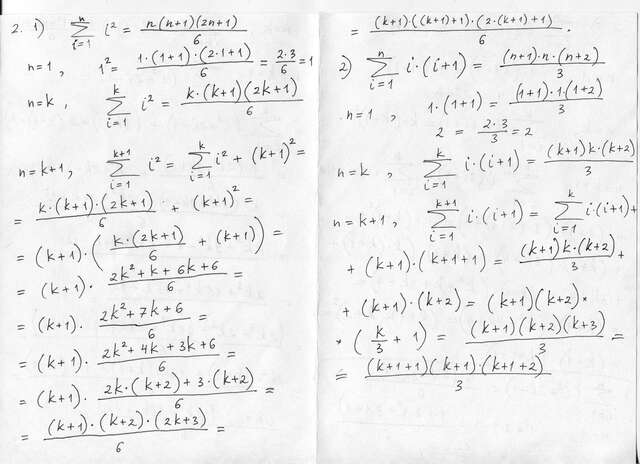 2. 1) \sum_{i=1}^{n} i^2 = \frac{n(n+1)(2n+1)}{6}
n=1, 1^2 = \frac{1·(1+1)·(2·1+1)}{6} = \frac{2·3}{6} = 1
n=k, \sum_{i=1}^{k} i^2 = \frac{k·(k+1)(2k+1)}{6}
n=k+1, \sum_{i=1}^{k+1} i^2 = \sum_{i=1}^{k} i^2 + (k+1)^2 =
= \frac{k·(k+1)·(2k+1)}{6} + (k+1)^2 =
= (k+1)·(\frac{k·(2k+1)}{6} + (k+1)) =
= (k+1)·\frac{2k^2+k+6k+6}{6} =
= (k+1)·\frac{2k^2+7k+6}{6} =
= (k+1)·\frac{2k^2+4k+3k+6}{6} =
= (k+1)·\frac{2k·(k+2)+3·(k+2)}{6} =
= \frac{(k+1)·(k+2)·(2k+3)}{6} =
= \frac{(k+1)·((k+1)+1)·(2·(k+1)+1)}{6}.
2) \sum_{i=1}^{n} i·(i+1) = \frac{(n+1)·n·(n+2)}{3}
n=1, 1·(1+1) = \frac{(1+1)·1·(1+2)}{3}
2 = \frac{2·3}{3} = 2
n=k, \sum_{i=1}^{k} i·(i+1) = \frac{(k+1)k·(k+2)}{3}
n=k+1, \sum_{i=1}^{k+1} i·(i+1) = \sum_{i=1}^{k} i·(i+1)+
+ (k+1)·(k+1+1) = \frac{(k+1)k·(k+2)}{3} +
+ (k+1)·(k+2) = (k+1)(k+2)*
* (\frac{k}{3} + 1) = \frac{(k+1)(k+2)(k+3)}{3} =
= \frac{(k+1+1)(k+1)·(k+1+2)}{3}